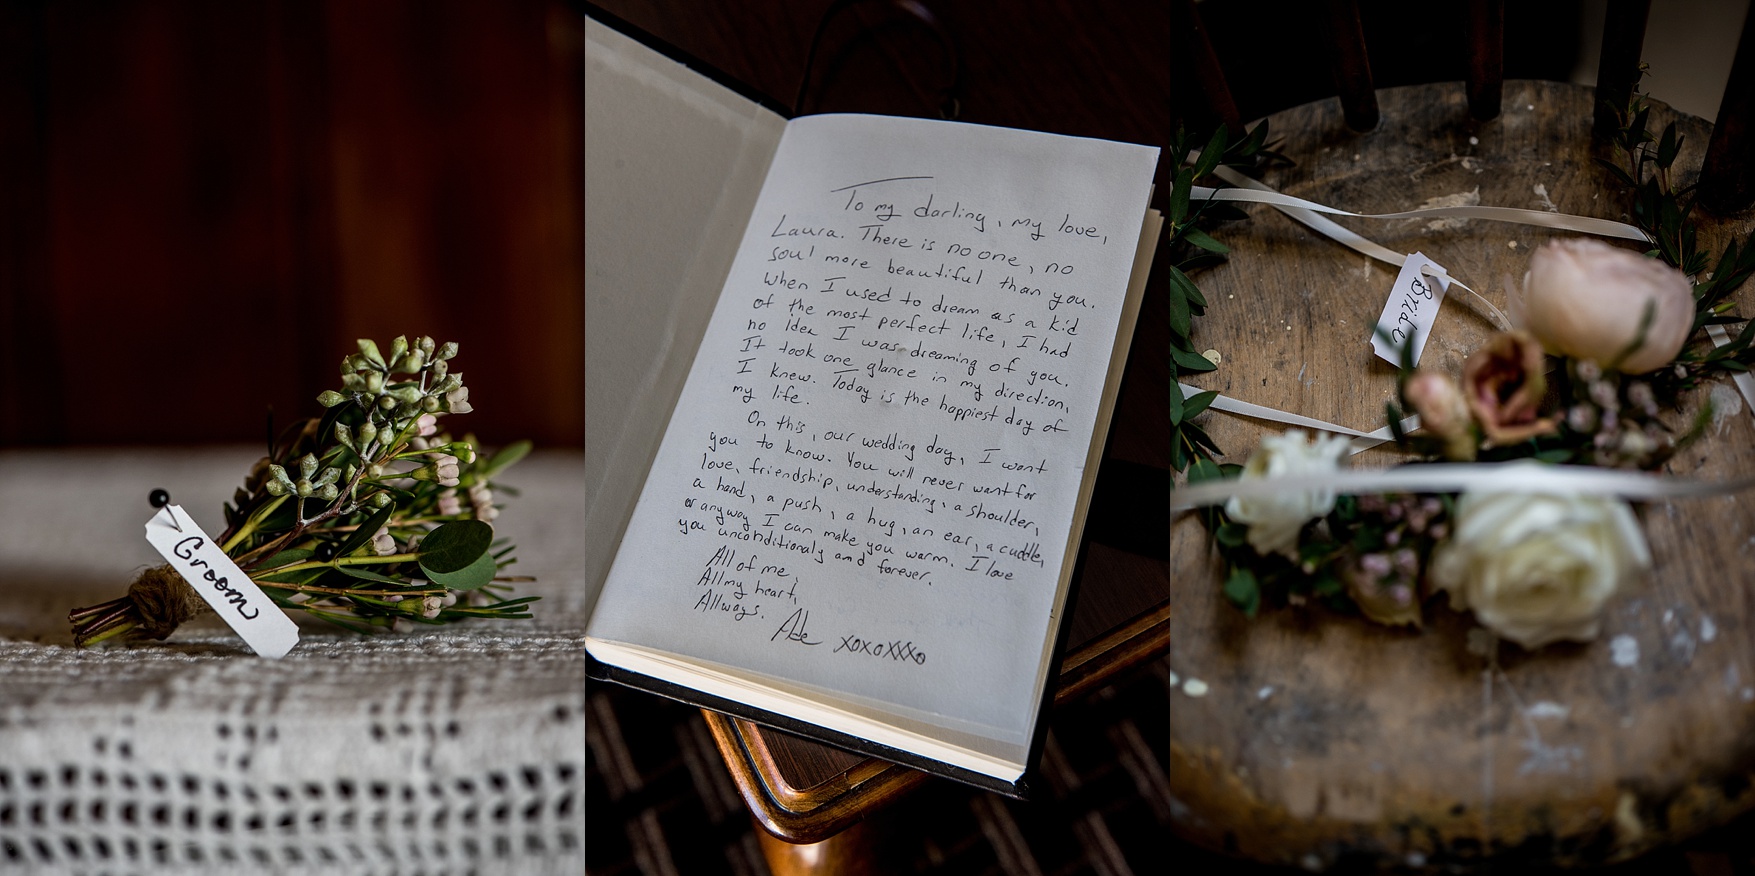 Groom
To my darling, my love,
Laura. There is no one, no
soul more beautiful than you.
When I used to dream as a kid
of the most perfect life, I had
no idea I was dreaming of you.
It took one glance in my direction,
I knew. Today is the happiest day of
my life.
On this, our wedding day, I want
you to know. You will never want for
love, friendship, understanding, a shoulder,
a hand, a push, a hug, an ear, a cuddle,
or anyway I can make you warm. I love
you unconditionaly and forever.
All of me,
All my heart,
Allways.
Ade xoxoxxxo
Bride